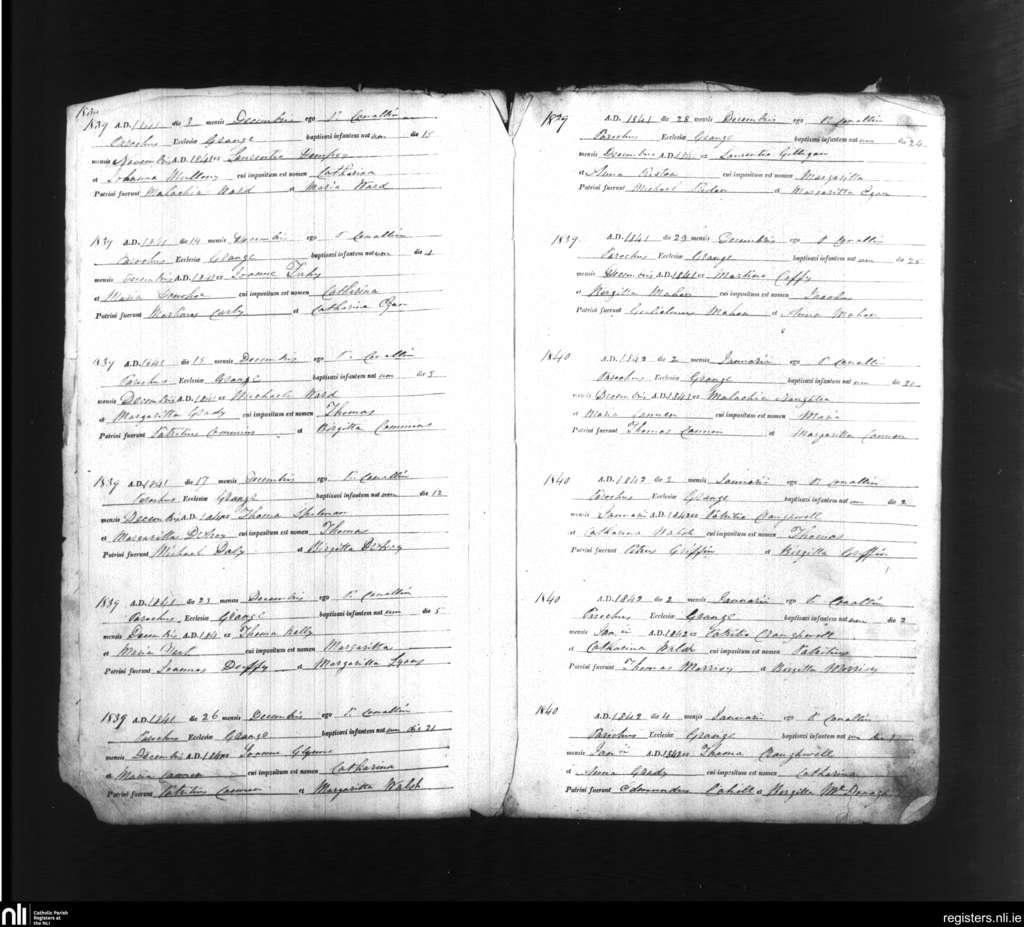 1839 A.D. 1841 die 3 mensis Decembris ego P. Conallin
Parochus Ecclesiæ Grange baptizavi infantem natum die 15
mensis Novembris A.D. 1841 ex Laurentio Dempsey
et Johanna cui impositum est nomen Catharina
Patrini fuerunt Malachia Ward et Maria Ward
1839 A.D. 1841 die 14 mensis Decembris ego P. Conallin
Parochus Ecclesiæ Grange baptizavi infantem natum die 4
mensis Decembris A.D. 1841 ex Joanne
et Maria Donohoe cui impositum est nomen Catharina
Patrini fuerunt Martinus Curly et Catharina Egan
1839 A.D. 1841 die 15 mensis Decembris ego P. Conallin
Parochus Ecclesiæ Grange baptizavi infantem natum die 3
mensis Decembris A.D. 1841 ex Michaele Ward
et Margaritta Grady cui impositum est nomen Thomas
Patrini fuerunt Patritius Commins et Birgitta Commins
1839 A.D. 1841 die 17 mensis Decembris ego P. Conallin
Parochus Ecclesiæ Grange baptizavi infantem natum die 12
mensis Decembris A.D. 1841 ex Thoma Spelman
et Margaritta cui impositum est nomen Thomas
Patrini fuerunt Michael Daly et Birgitta
1839 A.D. 1841 die 21 mensis Decembris ego P. Conallin
Parochus Ecclesiæ Grange baptizavi infantem natum die 5
mensis Decembris A.D. 1841 ex Thoma Kelly
et Maria cui impositum est nomen Margaritta
Patrini fuerunt Joannes Duffy et Margaritta Lyons
1839 A.D. 1841 die 26 mensis Decembris ego P. Conallin
Parochus Ecclesiæ Grange baptizavi infantem natum die 21
mensis Decembris A.D. 1841 ex Joanne Glynn
et Maria Cannon cui impositum est nomen Catharina
Patrini fuerunt Patritius Cannon et Margaritta Walsh
1839 A.D. 1841 die 28 mensis Decembris ego P. Conallin
Parochus Ecclesiæ Grange baptizavi infantem natum die 24
mensis Decembris A.D. 1841 ex Laurentio Gilligan
et Anna cui impositum est nomen Margaritta
Patrini fuerunt Michael et Margaritta Egan
1839 A.D. 1841 die 29 mensis Decembris ego P. Conallin
Parochus Ecclesiæ Grange baptizavi infantem natum die 25
mensis Decembris A.D. 1841 ex Martino Caffy
et Birgitta Mahon cui impositum est nomen
Patrini fuerunt Gulielmus Mahon et Anna Mahon
1840 A.D. 1842 die 2 mensis Januarii ego P. Conallin
Parochus Ecclesiæ Grange baptizavi infantem natum die
mensis Decembris A.D. 1841 ex Malachia Naughton
et Maria Cannon cui impositum est nomen Maria
Patrini fuerunt Thomas Cannon et Margaritta Cannon
1840 A.D. 1842 die 2 mensis Januarii ego P. Conallin
Parochus Ecclesiæ Grange baptizavi infantem natum die 2
mensis Januarii A.D. 1842 ex Patritio Craughwell
et Catharina Walsh cui impositum est nomen Thomas
Patrini fuerunt Peter Griffin et Birgitta Griffin
1840 A.D. 1842 die 2 mensis Januarii ego P. Conallin
Parochus Ecclesiæ Grange baptizavi infantem natum die 2
mensis Janii A.D. 1842 ex Patritio Craughwell
et Catharina Walsh cui impositum est nomen Patritius
Patrini fuerunt Thomas Morrisy et Birgitta Morrisy
1840 A.D. 1842 die 4 mensis Januarii ego P. Conallin
Parochus Ecclesiæ Grange baptizavi infantem natum die
mensis Janii A.D. 1842 ex Thoma Craughwell
et Anna Grady cui impositum est nomen Catharina
Patrini fuerunt Edmundus Cahill et Birgitta McDonagh
nli Catholic Parish
Registers at
the NLI
registers.nli.ie